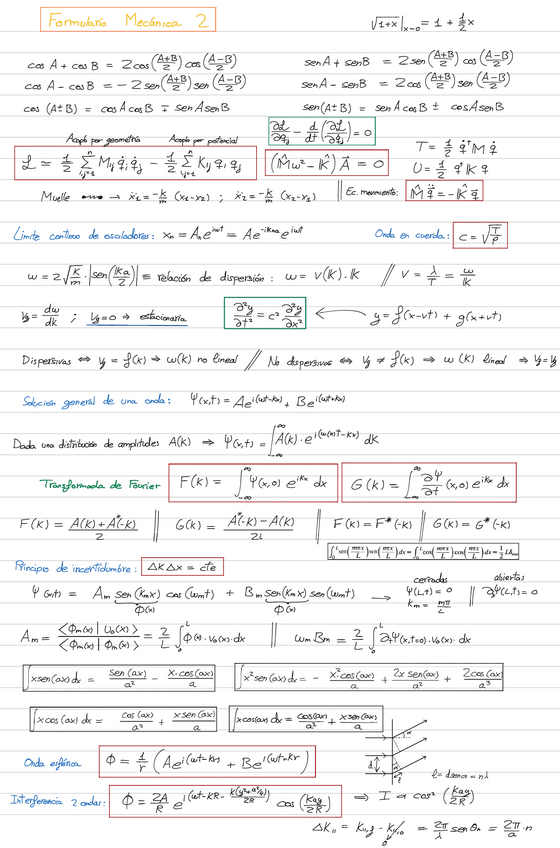 Formulario Mecánica 2
√(1+x) |ₓ→₀ = 1 + ½x
cos A + cos B = 2cos((A+B)/2) cos((A-B)/2)
sen A + sen B = 2 sen((A+B)/2) cos((A-B)/2)
cos A - cos B = -2 sen((A+B)/2) sen((A-B)/2)
sen A - sen B = 2cos((A+B)/2) sen((A-B)/2)
cos (A±B) = cos A cos B ∓ sen A sen B
sen(A±B) = sen A cos B ± cos A sen B
∂ℒ/∂q_j - d/dt (∂ℒ/∂q̇_j) = 0
Acopl. por geometría
Acopl. por potencial
ℒ ≃ ½ Σ M_ij q̇_i q̇_j - ½ Σ K_ij q_i q_j
(M̂ω² - K̂) A⃗ = 0
T = ½ q̇ᵗ M q̇
U = ½ qᵗ K q
Muelle → ẍ₁ = -k/m (x₁-x₂) ; ẍ₂ = -k/m (x₂-x₁)
Ec. movimiento: M̂ q̈ = -K̂ q⃗
Límite continuo de osciladores: xₙ = Aₙ e^{iωt} = A e^{-ikna} e^{iωt}
Onda en cuerda: c = √(T/ρ)
ω = 2√(K/m) · |sen(ka/2)| ≡ relación de dispersión: ω = v(k)·k // v = λ/T = ω/k
v_g = dω/dk ; v_g = 0 → estacionaria
∂²y/∂t² = c² ∂²y/∂x² ← y = f(x-vt) + g(x+vt)
Dispersivas ⇔ v_f = f(k) ⇒ ω(k) no lineal // No dispersivas ⇔ v_f ≠ f(k) ⇒ ω(k) lineal ⇒ v_f = v_g
Solución general de una onda: Ψ(x,t) = A e^{i(ωt-kx)} + B e^{i(ωt+kx)}
Dada una distribución de amplitudes A(k) ⇒ Ψ(x,t) = ∫_{-∞}^{∞} A(k) · e^{i(ω(k)t-kx)} dk
Transformada de Fourier
F(k) = ∫_{-∞}^{∞} Ψ(x,0) e^{ikx} dx
G(k) = ∫_{-∞}^{∞} ∂Ψ/∂t (x,0) e^{ikx} dx
F(k) = (A(k) + A*(-k))/2 || G(k) = (A*(-k) - A(k))/2i || F(k) = F*(-k) || G(k) = G*(-k)
∫₀ᴸ sen(mπx/L) sen(nπx/L) dx = ∫₀ᴸ cos(mπx/L) cos(nπx/L) dx = ½ L δ
Principio de incertidumbre: ΔkΔx = cte
cerradas
abiertas
Ψ(x,t) = A_m sen(k_m x) cos(ω_m t) + B_m sen(k_m x) sen(ω_m t) →
Φ(x)
Φ(x)
Ψ(L,t) = 0
k_m = mπ/L
∂Ψ(L,t) = 0
A_m = <Φ_m(x) | U₀(x)> / <Φ_m(x) | Φ_m(x)> = 2/L ∫₀ᴸ Φ(x)·V₀(x)·dx || ω_m B_m = 2/L ∫₀ᴸ ∂Ψ(x,t=0)·V₀(x)·dx
∫x sen(ax) dx = sen(ax)/a² - x·cos(ax)/a
∫x² sen(ax) dx = - x²·cos(ax)/a + 2x sen(ax)/a² + 2cos(ax)/a³
∫x cos(ax) dx = cos(ax)/a² + x sen(ax)/a
∫x cos(ax) dx = cos(ax)/a² + x sen(ax)/a
Onda esférica Φ = 1/r (A e^{i(ωt-kr)} + B e^{i(ωt+kr)})
d
l = d sen α = nλ
Interferencia 2 ondas: Φ = 2A/R e^{i(ωt-kR-k(y²+a²/4)/2R)} cos(kay/2R) ⇒ I α cos²(kay/2R)
Δk_{||} = k_{||,f} - k_{||,0} = 2π/λ sen θₙ = 2π/a · n
0